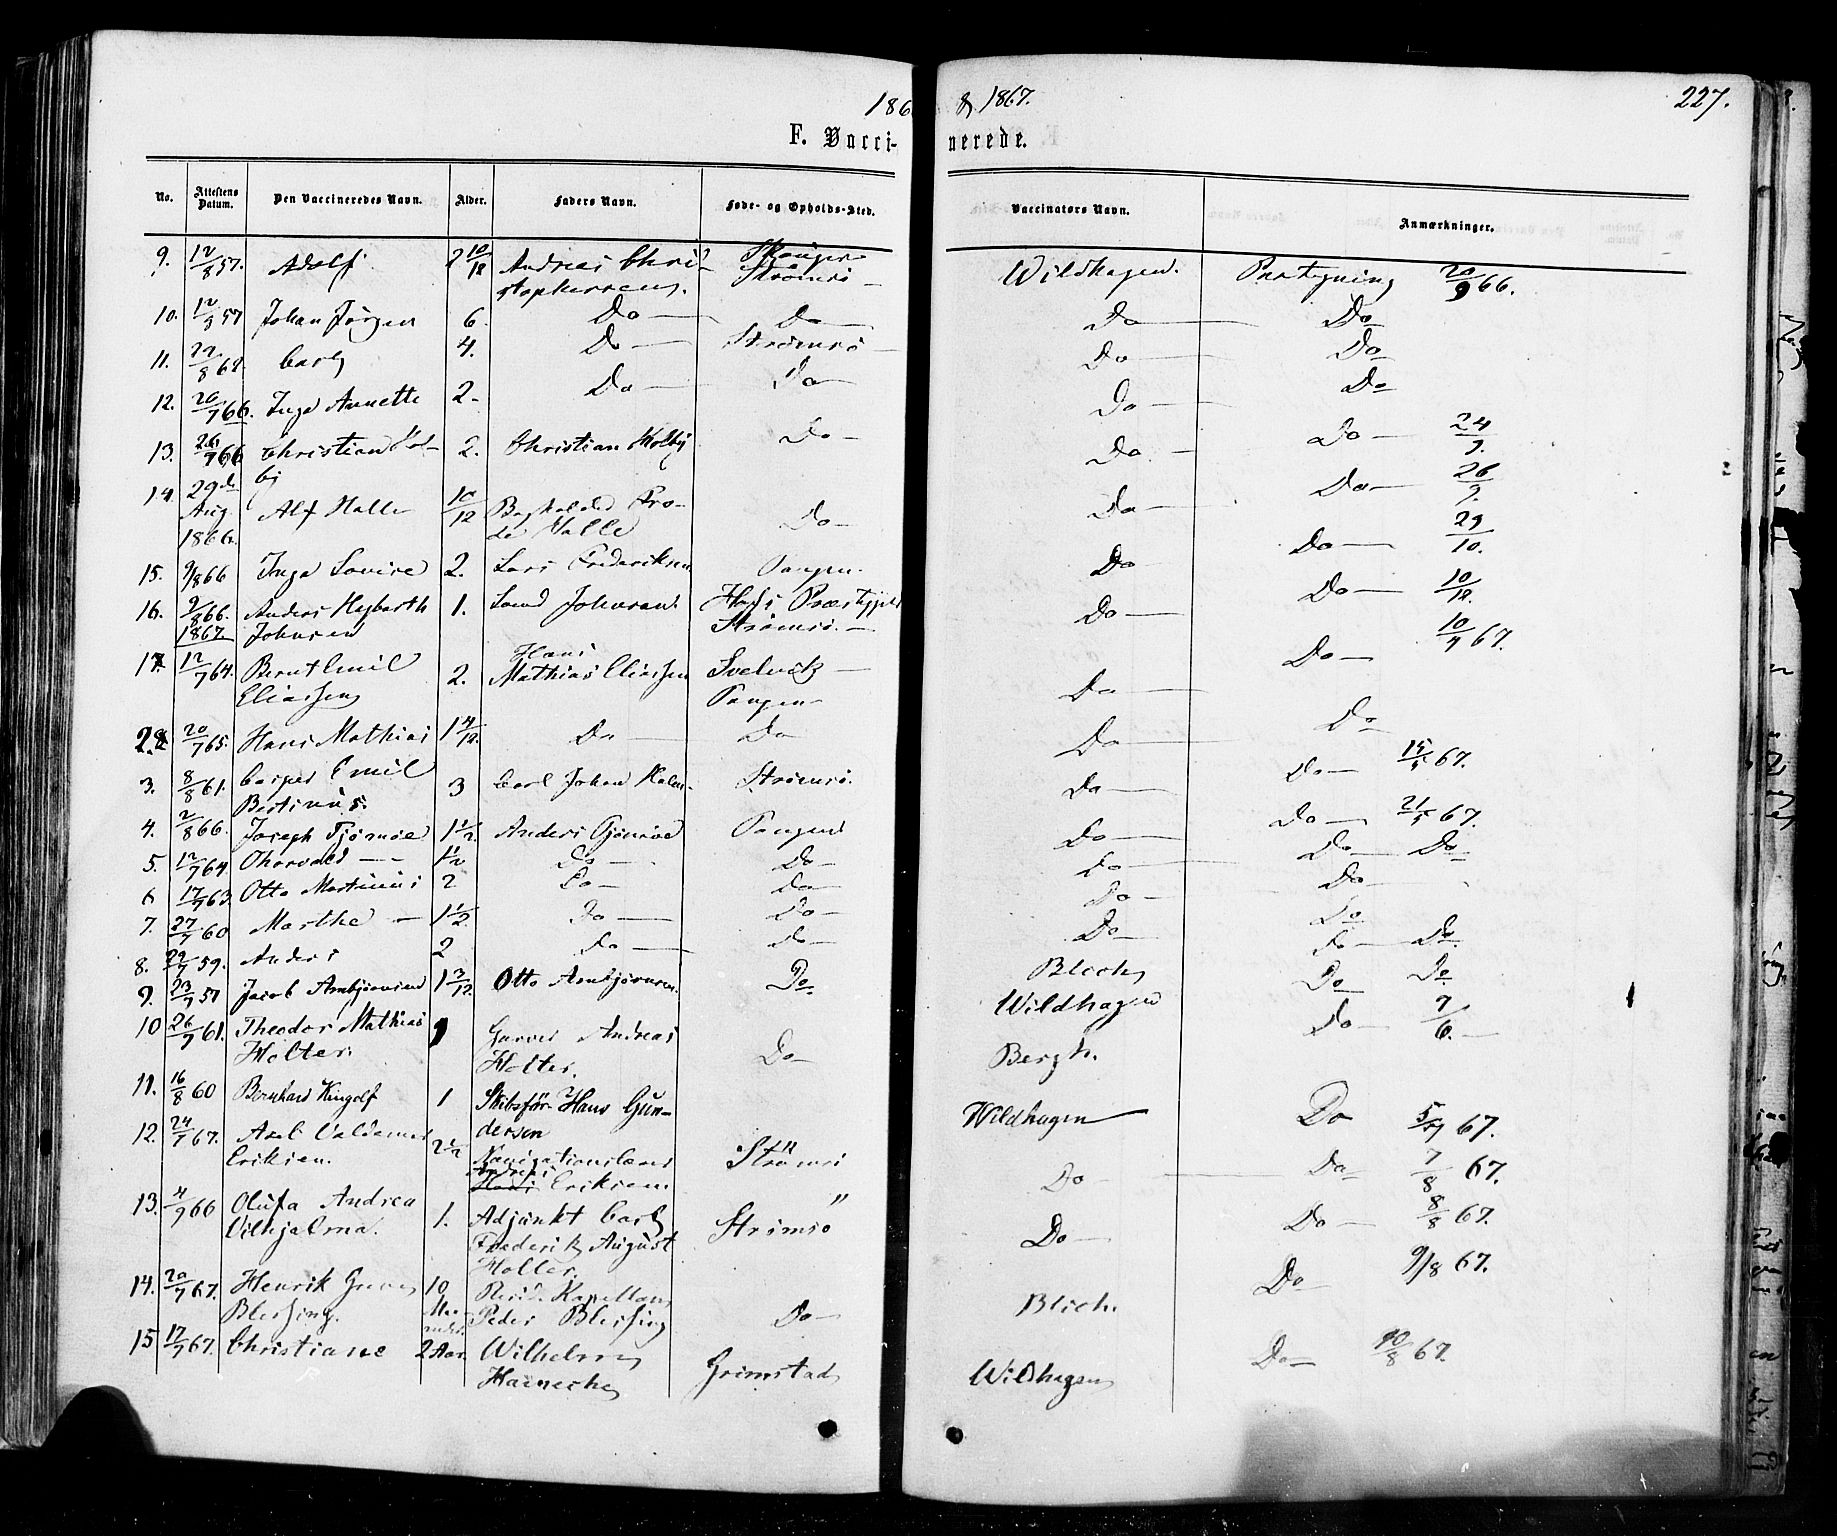 186 & 1867. 227.
F. Vacci- nerede.
No. Attestens Datum. Den Vaccineredes Navn. Alder. Faders Navn. Føde- og Opholds-Sted. Vaccinators Navn. Anmærkninger.
9. 12/8 57. Adolf 2 10/12 Andreas Chri- Wildhagen. 20/9 66.
stophersen. Strømsø —
10. 12/9 57 Johan Jørgen 6. Do — Do — Do — Do
11. 22/8 62. Carl 4. Do — Strømsø — Do — Do
12. 20/7 66. Inga Annette 2. Do — Do — Do — Do
13. 26/7 66 Christian Hol- 2. Christian Holby Do — Do — Do — 24/9.
by
14. 29de Aug 1866. Alf Halle 10/12 Fro- Do — Do — Do — 26/9.
de Halle
15. 9/8 66 Inga Lovise 2. Lars Frederiksen Tangen. Do — Do — 29/10.
16. 9/8 66. Anders Hybarth 1. Johnsen. Do — Do — 10/12.
1867. Johnsen Strømsø. —
17 12/7 64. Bernt Emil 2. Hans Svelvik — Do — Do — 10/4 67.
Eliassen Mathias Eliassen Tangen —
2. 20/7 65. Hans Mathias 1 4/12. Do — Do Do — Do
3. 8/8 61. Casper Emil 3 Carl Johan Strømsø. Do — Do — 15/5 67.
Bertinus.
4. 2/8 66. Joseph Tjømøe 1 1/2 Anders Tjømøe Tangen Do — Do — 21/5 67.
5. 12/7 64. Thorvald — — 1 1/2 Do — Do — Do — Do — Do
6 17/7 63. Otto Martinius 2 Do — Do — Do — Do —
7. 27/7 60 Marthe — 1 1/2. Do — Do — Do — Do
8. 29/7 59. Anders 2 Do — Do — Blich Do — Do
9. 23/7 57 Jacob Ambjørnsen 1 3/12. Otto Ambjørnsen. Do. Wildhagen Do — Do
10 26/7 61. Theodor Mathias 1 Garver Andreas Do — Bergh. Do — 7/6. —
Holter. Holter.
11. 16/8 60 Bernhard Kingolf 1 Skibsfør. Hans Gun- Wildhagen Do 5/7 67.
dersen
12. 24/7 67. Axel Valdemar 2 1/2 Navigationslærer Strömsö Do — Do — 7/8 67.
Eriksen. Andreas Eriksen.
13. 4/9 66 Olufa Andrea 1. Adjunkt Carl Strømsø Do — Do — 8/8 67.
Vilhjalma. Frederik August
Holler.
14. 20/7 67. Henrik 10 Resid. Kapellan Do — Blich. Do — 9/8 67.
Blessing. Maaneder. Peder Blessing
15 17/7 67. Christiane 2 Aar. Wilhelm Grimstad Wildhagen Do — 10/8 67.